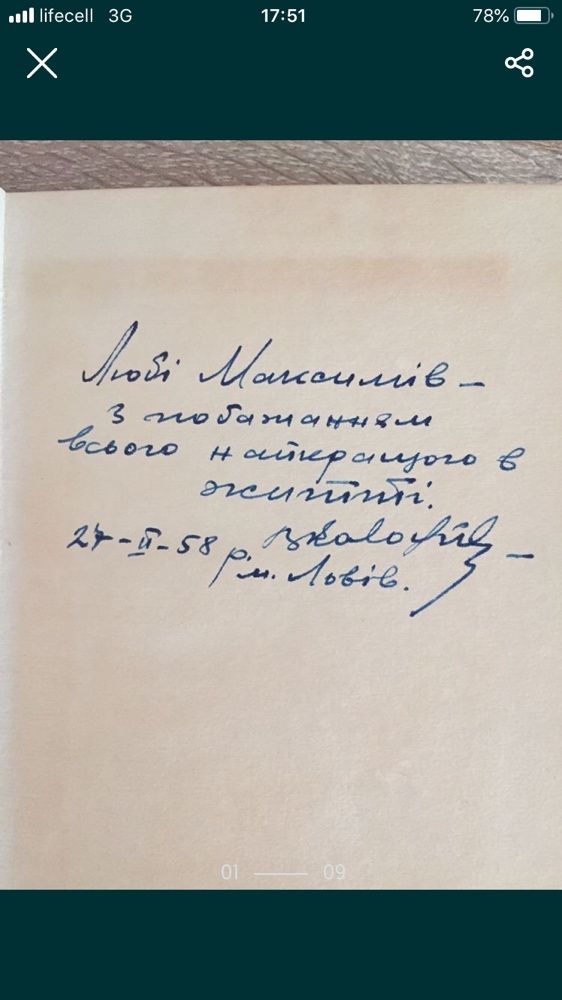 lifecell 3G 17:51 78%
Любі Максимів –
З побажанням
всього найкращого в
житті.
27-II-58 р.
м. Львів.
01 09